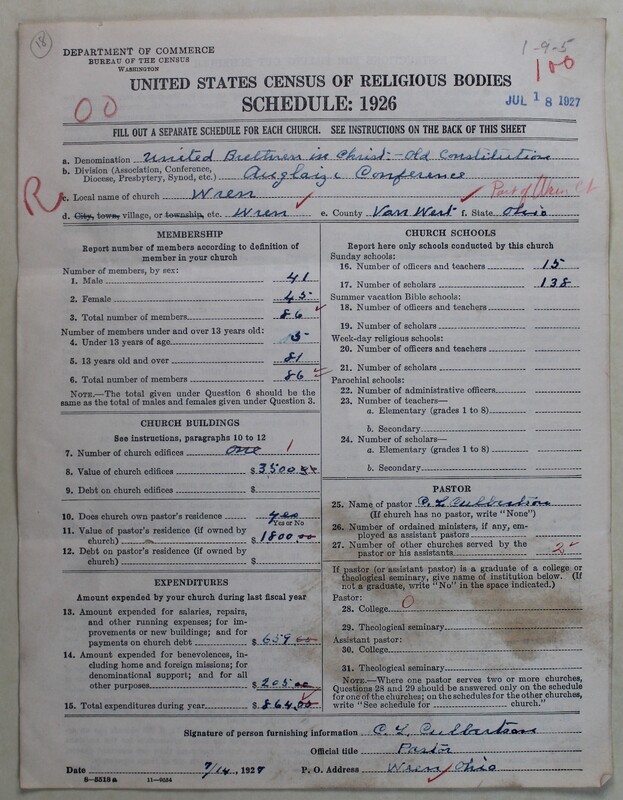 18
DEPARTMENT OF COMMERCE
BUREAU OF THE CENSUS
WASHINGTON
1-9-5
100
UNITED STATES CENSUS OF RELIGIOUS BODIES
00
SCHEDULE: 1926
JUL 18 1927
FILL OUT A SEPARATE SCHEDULE FOR EACH CHURCH. SEE INSTRUCTIONS ON THE BACK OF THIS SHEET
a. Denomination United Brethren in Christ - Old Constitution
b. Division (Association, Conference, Diocese, Presbytery, Synod, etc.) Auglaize Conference
R
c. Local name of church Wren
Part of Wren Ct
d. City, town, village, or township, etc. Wren e. County Van Wert f. State Ohio
MEMBERSHIP
Report number of members according to definition of member in your church
Number of members, by sex:
1. Male 41
2. Female 45
3. Total number of members 86
Number of members under and over 13 years old:
4. Under 13 years of age 5
5. 13 years old and over 81
6. Total number of members 86
NOTE.—The total given under Question 6 should be the same as the total of males and females given under Question 3.
CHURCH BUILDINGS
See instructions, paragraphs 10 to 12
7. Number of church edifices one 1
8. Value of church edifices $3500.00
9. Debt on church edifices $
10. Does church own pastor's residence? yes
Yes or No
11. Value of pastor's residence (if owned by church) $1800.00
12. Debt on pastor's residence (if owned by church) $
EXPENDITURES
Amount expended by your church during last fiscal year
13. Amount expended for salaries, repairs, and other running expenses; for improvements or new buildings; and for payments on church debt $659.00
14. Amount expended for benevolences, including home and foreign missions; for denominational support; and for all other purposes $205.00
15. Total expenditures during year $864.00
CHURCH SCHOOLS
Report here only schools conducted by this church
Sunday schools:
16. Number of officers and teachers 15
17. Number of scholars 138
Summer vacation Bible schools:
18. Number of officers and teachers
19. Number of scholars
Week-day religious schools:
20. Number of officers and teachers
21. Number of scholars
Parochial schools:
22. Number of administrative officers
23. Number of teachers—
a. Elementary (grades 1 to 8)
b. Secondary
24. Number of scholars—
a. Elementary (grades 1 to 8)
b. Secondary
PASTOR
25. Name of pastor C. L. Culbertson
(If church has no pastor, write "None")
26. Number of ordained ministers, if any, employed as assistant pastors
27. Number of other churches served by the pastor or his assistants 2
If pastor (or assistant pastor) is a graduate of a college or theological seminary, give name of institution below. (If not a graduate, write "No" in the space indicated.)
Pastor:
28. College 0
29. Theological seminary
Assistant pastor:
30. College
31. Theological seminary
NOTE.—Where one pastor serves two or more churches, Questions 28 and 29 should be answered only on the schedule for one of the churches; on the schedules for the other churches, write "See schedule for church."
Signature of person furnishing information C. L. Culbertson
Official title Pastor
Date 7/14, 1927 P. O. Address Wren, Ohio
8-5518a 11-9034